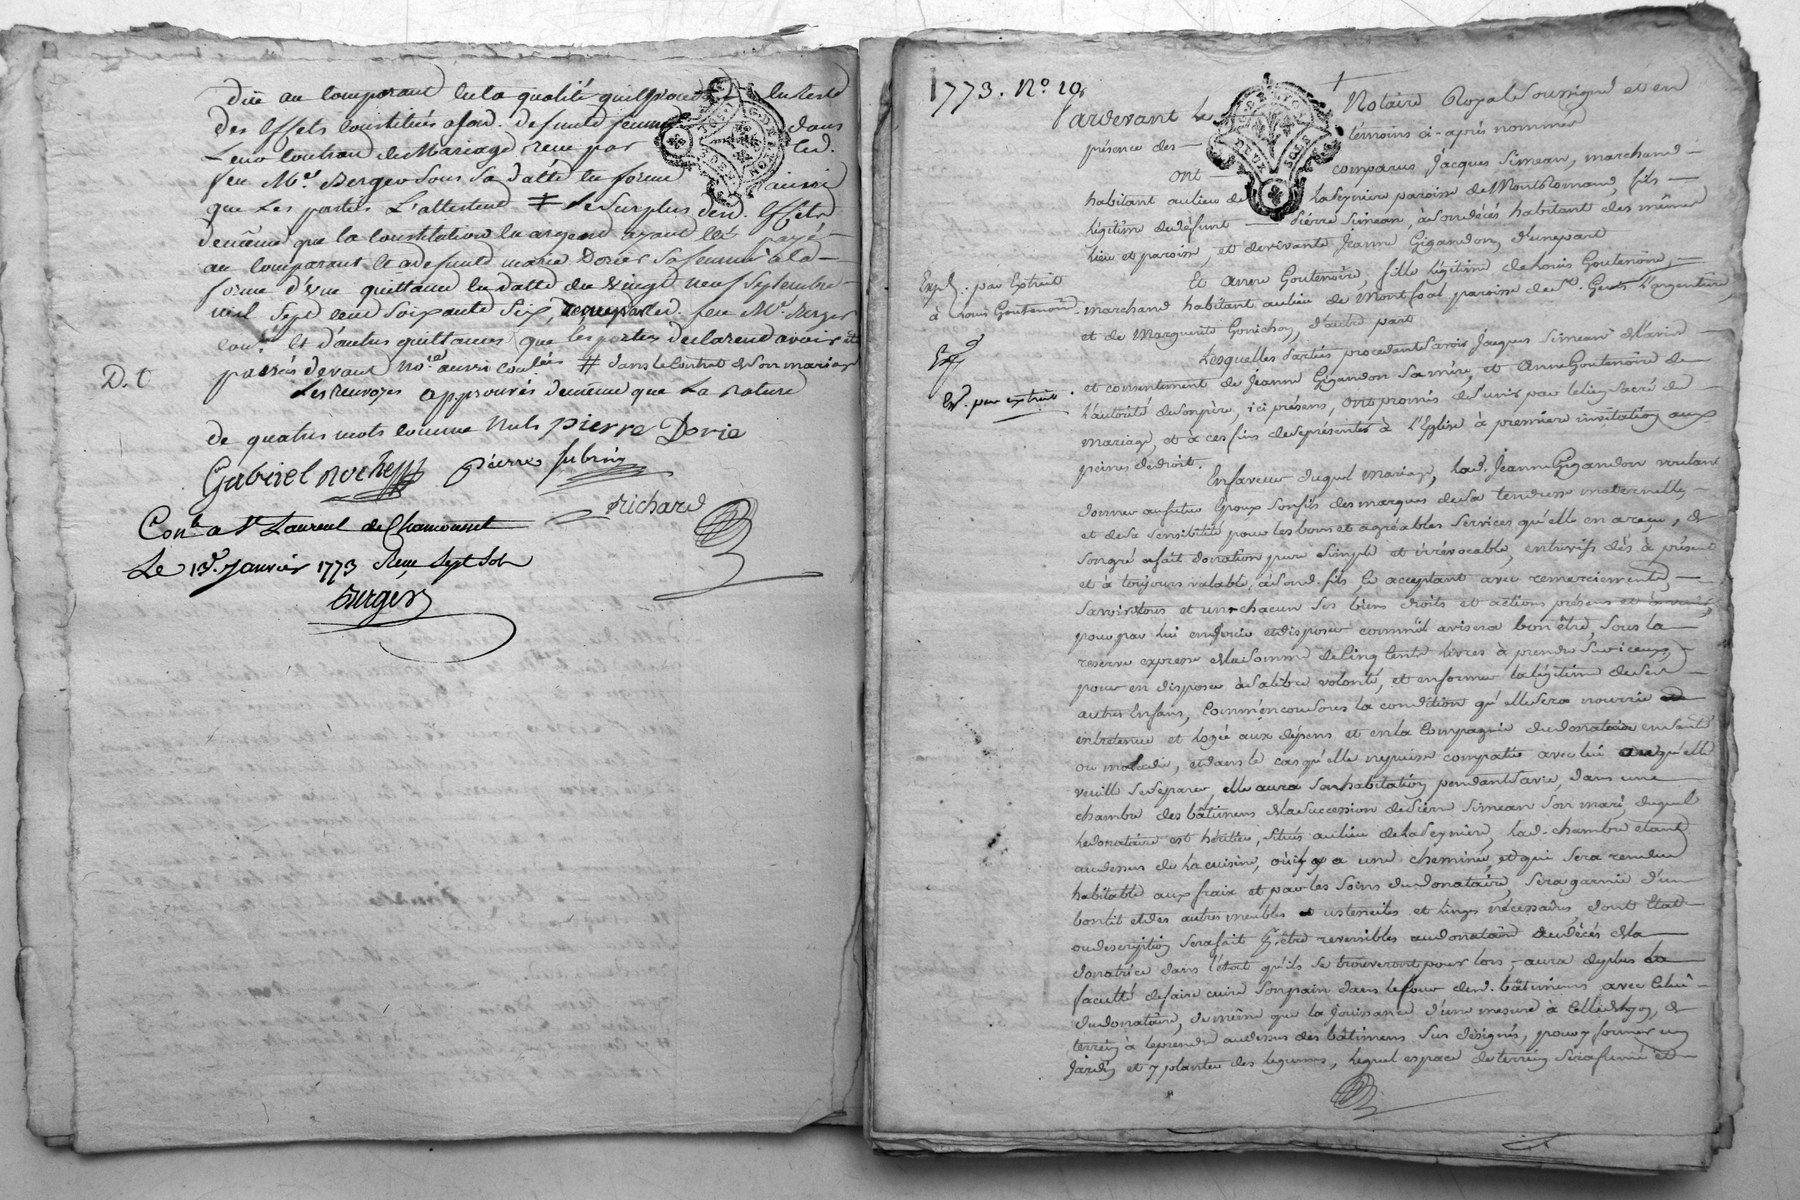 due au comparant en la qualité qu'il procede
des Effets constitués a feue defunte femme dans
Leur Contrat de Mariage reçu par led.
feu Me. Berger sous sa datte en forme ainsi
que Les parties L'attestent # Le surplus desd. Effets
de même que la Constitution en argent ayant été payé
au Comparant et a defunte marie Dorier sa femme a la
forme d'une quittance en datte du vingt neuf septembre
mil sept cent soixante six, reçue par led. feu Me. Berger
et d'autres quittances que les parties declarent avoir été
passées devant No.re aussi # dans le Contrat de son mariage
D. C
Les renvoyes approuvés de même que La rature
de quatre mots comme Nuls pierre Dorie
Gabriel rochette pierre
Richard
Con.lé a St. Laurent de Chamousset
Le 13e. Janvier 1773 Reçu sept sols
Berger
1773. No. 10.
GEN. DE LYON
DEUX SOLS
Pardevant Le Notaire Royal Soussigné et en
présence des témoins ci-après nommés
ont comparus Jacques Simean, marchand
habitant au lieu de La Seynière paroisse de Montromand, fils
légitime du défunt Pierre Simean, à son décès habitant des mêmes
lieu et paroisse, et de vivante Jeanne Gigandon, d'une part
Et Anne Goutenoire, fille légitime de Louis Goutenoire,
Exp. par Extrait
à Louis Goutenoire
marchand habitant au lieu de Montfoal paroisse de St. Genis L'argentière,
et de Marguerite Gonichon, d'autre part
Lesquelles Parties procedant Savoir Jacques Simean de l'avis
et consentement de Jeanne Gigandon Sa mère, et Anne Goutenoire de
Exp. par extrait
L'autorité de son père, ici présens, ont promis de s'unir par le lien sacré de
mariage, et à ces fins de se présenter à L'Eglise à première invitation aux
peines de droit.
En faveur duquel mariage, lad. Jeanne Gigandon voulant
donner au futur Epoux son fils des marques de sa tendresse maternelle,
et de sa sensibilité pour les bons et agréables services qu'elle en a reçu, de
son gré a fait donation pure simple et irrévocable, entrevifs dès à présent
et à toujours valable, à sond. fils, ce acceptant avec remerciement,
Savoir de tous et un chacun ses biens droits et actions présens et à venir,
pour par lui en jouir et disposer comme il avisera bon être, sous la
reserve expresse de la somme de Cinq Cents livres à prendre sur iceux,
pour en disposer à sa libre volonté, et en former la légitime de ses
autres Enfans, Comme encore sous la condition qu'elle sera nourrie
entretenue et logée aux dépens et en la Compagnie du donataire en santé
ou maladie, et dans le cas qu'elle ne puisse compatir avec lui qu'elle
veuille se séparer, elle aura son habitation, pendant sa vie, dans une
chambre des bâtimens de la succession de Pierre Simean son mari, duquel
le donataire est héritier, situés au lieu de La Seynière, lad. chambre étant
au dessus de la cuisine, où il y a une cheminée, et qui sera rendue
habitable aux fraix et par les soins du donataire, sera garnie d'un
bon lit et des autres meubles ustenciles et linges nécessaires, dont Etat
ou description sera fait pr. être reversibles au donataire au décès de la
donatrice dans l'état qu'ils se trouveront pour lors, aura de plus la
faculté de faire cuire son pain dans le four desd. bâtimens avec Celui
du donataire, de même que la jouissance d'une mesure à
terrein à le prendre au dessus des bâtimens sus désignés, pour y former un
Jardin et y planter des legumes, lequel espace de terrein sera fumé et